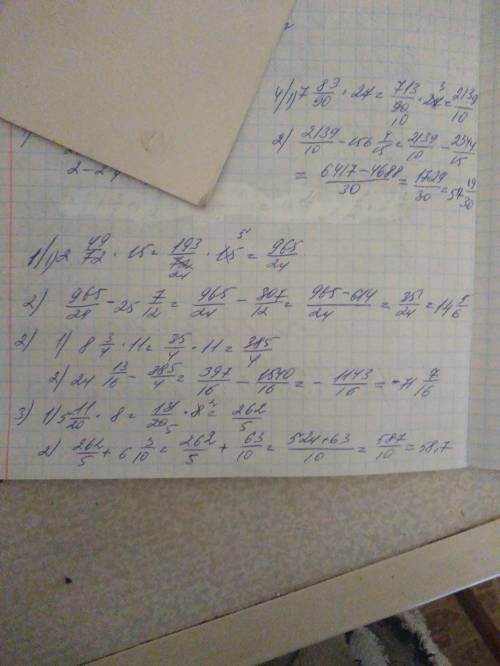 4) 1) 7 83/90 · 27 = 713/90 · 27 = 2139/10
10 3
2) 2139/10 - 156 4/15 = 2139/10 - 2344/15
= (6417-4688)/30 = 1729/30 = 57 19/30
2-2
1) 1) 2 49/72 · 15 = 193/72 · 15 = 965/24
24 5
2) 965/24 - 25 7/12 = 965/24 - 307/12 = (965-614)/24 = 351/24 =
2) 1) 8 3/4 · 11 = 35/4 · 11 = 385/4
2) 24 13/16 - 385/4 = 397/16 - 1540/16 = - 1143/16 = -71 7/16
3) 1) 5 11/20 · 8 = 131/20 · 8 = 262/5
5 2
2) 262/5 + 6 3/10 = 262/5 + 63/10 = (524+63)/10 = 587/10 = 58,7